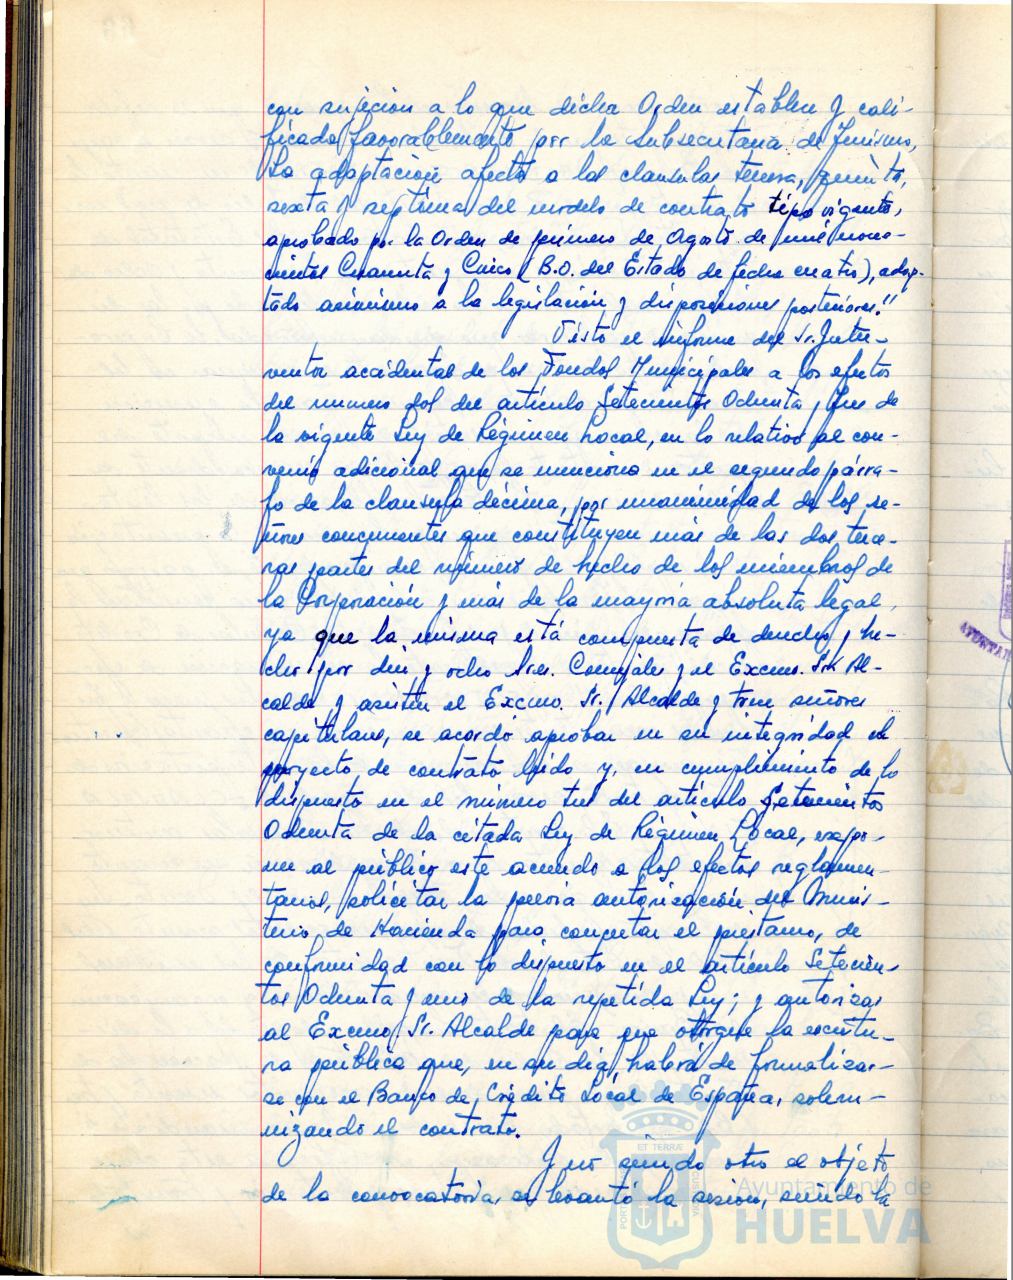 con sujeción a lo que dicha Orden establece y cali-
ficada favorablemente por la Subsecretaria de Turismo,
La adaptación afecta a las clausulas tercera, quinta,
sexta y septima del modelo de contrato tipo vigente,
aprobado por la Orden de primero de Agosto de mil nove-
cientos Cuarenta y Cinco (B.O. del Estado de fecha cuatro), adap-
tado asimismo a la legislación y disposiciones posteriores."
Visto el informe del Sr. Inter-
ventor accidental de los Fondos Municipales a los efectos
del numero dos del artículo Setecientos Ochenta y tres de
la vigente Ley de Régimen Local, en lo relativo al con-
venio adicional que se menciona en el segundo párra-
fo de la clausula décima, por unanimidad de los se-
ñores concurrentes que constituyen más de las dos terce-
ras partes del número de hecho de los miembros de
la Corporación y más de la mayoría absoluta legal,
ya que la misma está compuesta de derecho y he-
cho por diez y ocho Sres. Concejales y el Excmo. Sr. Al-
calde y asisten el Excmo. Sr. Alcalde y trece señores
capitulares, se acordó aprobar en su integridad el
proyecto de contrato leido y, en cumplimiento de lo
dispuesto en el número tres del artículo Setecientos
Ochenta de la citada Ley de Régimen Local, expo-
ner al público este acuerdo a los efectos reglamen-
tarios, solicitar la previa autorización del Minis-
terio de Hacienda para concertar el préstamo, de
conformidad con lo dispuesto en el artículo Setecien-
tos Ochenta y uno de la repetida Ley; y autorizar
al Excmo. Sr. Alcalde para que otorgue la escritu-
ra pública que, en su día, habrá de formalizar-
se con el Banco de Crédito Local de España, solem-
nizando el contrato.
Y no siendo otro el objeto
de la convocatoria, se levantó la sesion, siendo la
Ayuntamiento de
HUELVA